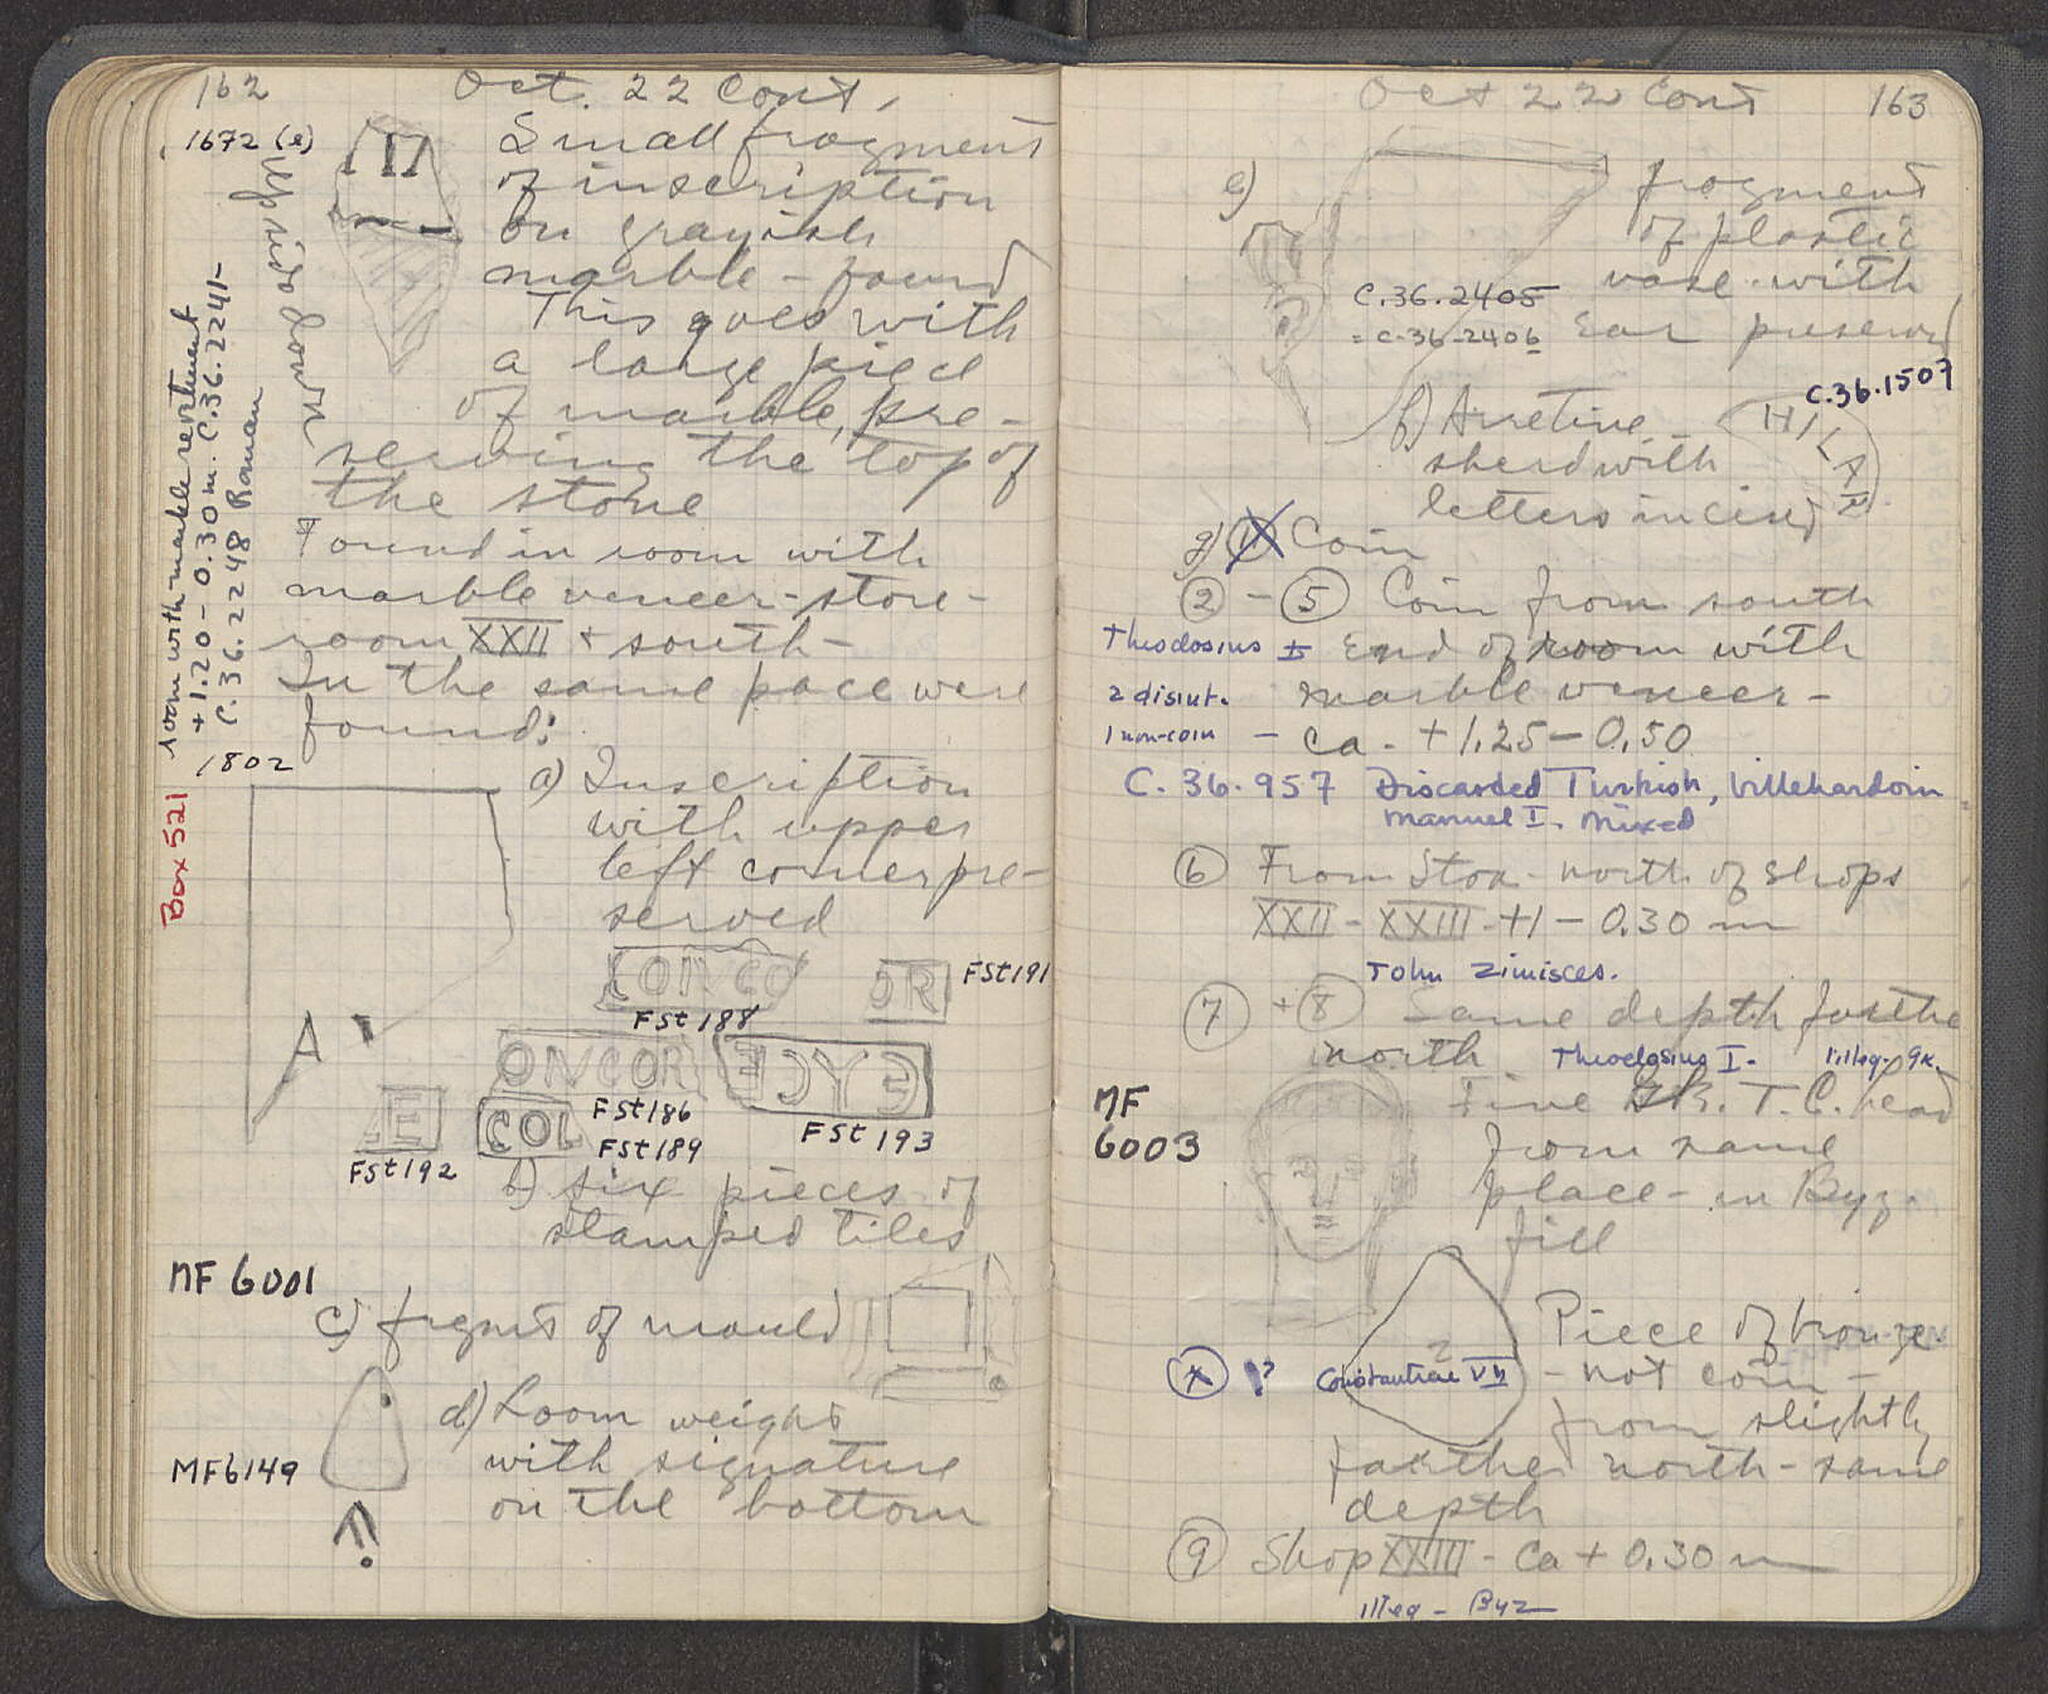 162
Oct. 22 Cont.
1672 (e)
Small fragment
of inscription
on grayish
marble - found
This goes with
a large piece
of marble, pre-
serving the top of
the stone
Found in room with
marble veneer - store-
room XXII + south -
In the same pace were
found:
room with marble revetment
+1.20 - 0.30 m. C.36.2241-
C.36.2248 Roman
1802
Box 521
a) Inscription
with upper
left corner pre-
served
A
CONCO
FSt 188
OR
FSt 191
ONCOR
FSt 186
FSt 193
E
FSt 192
COL
FSt 189
b) six pieces of
stamped tiles
MF 6001
c) fragmts of mould
MF 6149
d) Loom weight
with signature
on the bottom
Oct 22 Cont
163
e) fragment
of plastic
vase with
Ear preserved
C.36.2405
= C-36-2406
C.36.1507
f) Arretine
sherd with
letters incised
HILAR
g) 1 Coin
2 - 5 Coin from south
Theodosius I - End of room with
2 disint. - marble veneer -
1 non-coin - ca. +1.25 - 0.50
C. 36. 957 Discarded Turkish, Villehardoin
Manuel I. Mixed
6 From Stoa - north of shops
XXII - XXIII - +1 - 0.30 m
John Zimisces.
7 + 8 Same depth further
north
Theodosius I. 1 illeg. gk.
MF
6003
Fine GR. T.C. head
from same
place - in Byz.
fill
Piece of bronze
Constantine VII
- not coin -
from slightly
farther north - same
depth
9 Shop XXIII - Ca + 0.30 m
illeg - Byz